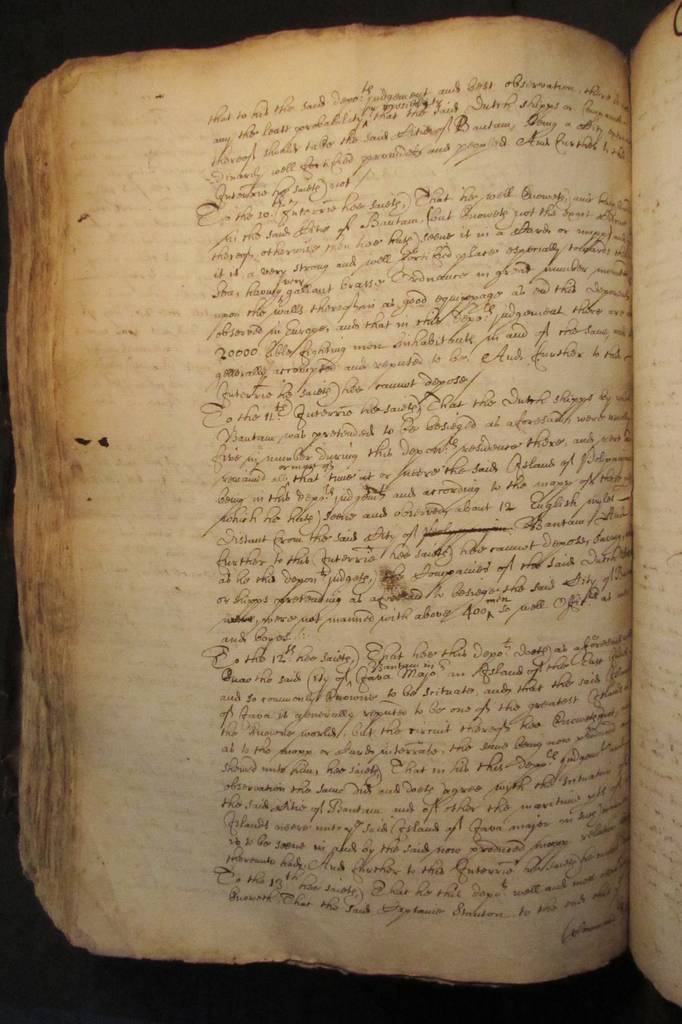 that to his the said depo:ts judgement and best observation, there is
any the least probability or possibility that the said Dutch shipps or Companies
thereof should take the said Citie of Bantam, being a City
well fortified provided and peopled And further to this
Interrie hee saieth not
To the 10:th Interrie hee saieth, That he well knoweth, and hath
in the said Citie of Bantam (but knoweth not the exact
thereof, otherwise then hee hath seene it in a Carde or mapp) and
it is a very strong and well fortified place especially towards the
Sea, having very gallant brasse Ordnance in great number mounted
upon the walls thereof in as good equippage as ever this Deponent
observed in Europe, and that in this depo:ts judgement there are
20000 able fighting men Inhabitants in and of the same, and
generally accompted and reputed to be. And further to this
Interrie he saieth hee cannot depose
To the 11:th Interrie hee saieth, That the Dutch shipps by which
Bantam was pretended to be besieged as aforesaid were
five in number during this depon:ts residence there, and
remained all or most of that time at or neere the said Island of
being in this depo:ts judgem:t and according to the mapp of those
which he hath seene and observed, about 12 English myles
distant from the said City of Bantam, And
further to this Interrie hee saieth hee cannot depose, saving
as he this depon:t judgeth, the Companies of the said Dutch
or shipps pretending as aforesaid to besiege the said City of
were not manned with above 400 men, so well Officers as
and boyes.
To the 12:th hee saieth, That hee this depo:t doeth as aforesaid
know the said City of Bantam in Java Major an Island of the East
and so commonly knowne to be scituate, and that the said Island
of Java is generally reputed to be one of the greatest Islands
the knowne world, but the circuit thereof hee knoweth not,
as to the mapp or Carde interrate, the same being now produced
shewed unto him, hee saieth That in his this depo:ts judgem:t
observation the same did and doeth agree with the scituation of
the said Citie of Bantam and of other the maritime pts of
Islands neere unto y:e said Island of Java major in
is to be seene in and by the said now produced mapp relation
thereunto had, And further to this Interrie hee saieth he
To the 13:th hee saieth, That he this depo:t well and
knoweth That the said Captaine Stanton to the end